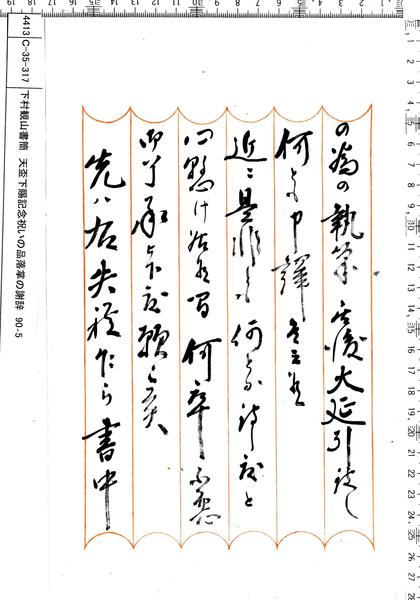 の為の執筆是後大延引致し
何とも申訳無之候
近々是非とも何とか致度と
心懸け居候間何卒不悪
御了承被下度願上候
先ハ右失礼乍ら書中
4413 C-35-317 下村観山書簡 天盃下賜記念祝いの品落掌の謝辞 90-5